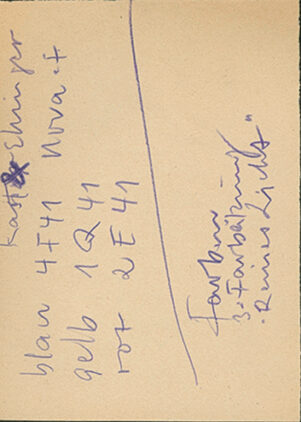 Kast & Ehinger
blau 4F41
gelb 1Q41
rot 2E41
Farben
3. Farbätzung
"Reines Licht"